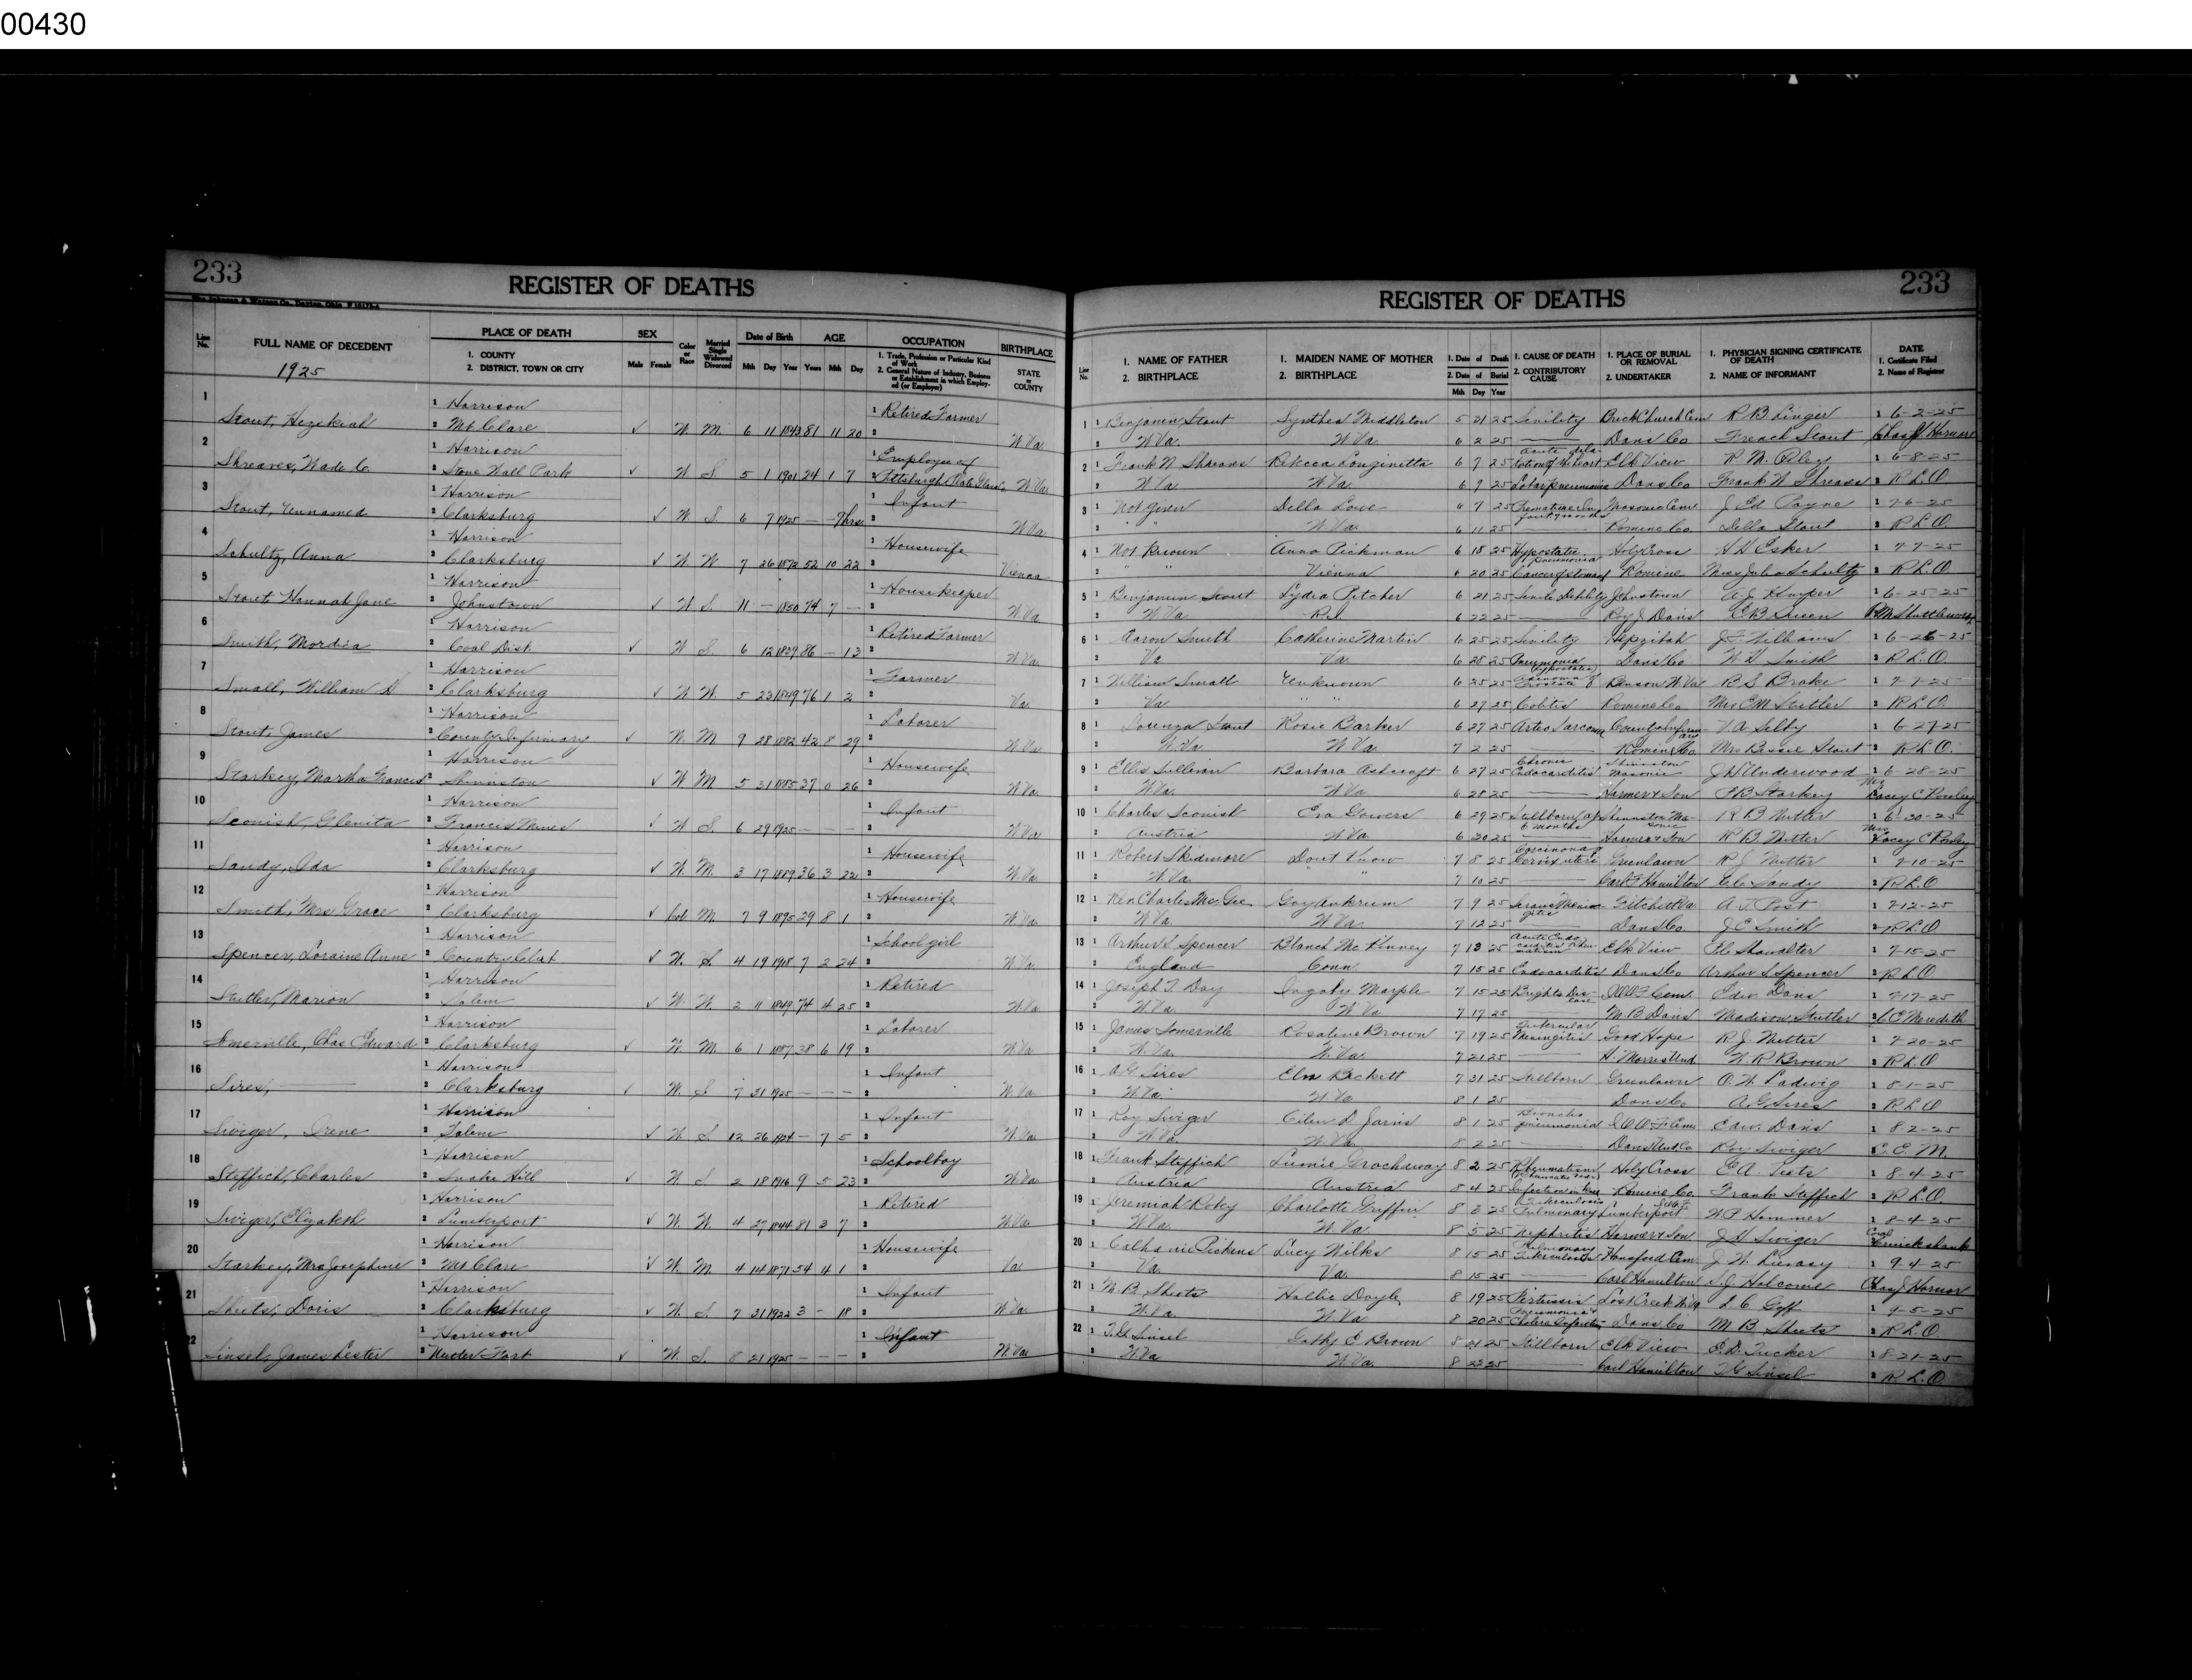 00430
233 REGISTER OF DEATHS
Line No. FULL NAME OF DECEDENT PLACE OF DEATH SEX Color or Race Married Single Widowed Divorced Date of Birth AGE OCCUPATION BIRTHPLACE
1925 1. COUNTY 2. DISTRICT, TOWN OR CITY Male Female Mth Day Year Years Mth Day 1. Trade, Profession or Particular Kind of Work 2. General Nature of Industry, Business or Establishment in which Employed (or Employer) STATE or COUNTY
1 Stout, Hezekiah 1 Harrison 2 Mt. Clare ✓ W. M. 6 11 1843 81 11 20 1 Retired Farmer 2 W.Va.
2 Shreaves, Wade C. 1 Harrison 2 Stone Wall Park ✓ W S. 5 1 1901 24 1 7 1 Employee of 2 Pittsburgh Plate Glass Co W.Va.
3 Stout, Unnamed 1 Harrison 2 Clarksburg ✓ W. S. 6 7 1925 — - 7hrs. 1 Infant 2 W.Va.
4 Schultz, Anna 1 Harrison 2 Clarksburg ✓ W. W 7 26 1872 52 10 22 1 Housewife 2 Vienna
5 Stout, Hannah Jane 1 Harrison 2 Johnstown ✓ W S. 11 — 1850 74 7 — 1 Housekeeper 2 W.Va.
6 Smith, Mordica 1 Harrison 2 Coal Dist. ✓ W S. 6 12 1839 86 — 13 1 Retired Farmer 2 W.Va.
7 Small, William H 1 Harrison 2 Clarksburg ✓ W. W. 5 23 1849 76 1 2 1 Farmer 2 Va.
8 Stout, James 1 Harrison 2 County Infirmary ✓ W. M 9 28 1882 42 8 29 1 Laborer 2 W.Va.
9 Starkey, Martha Frances 1 Harrison 2 Shinnston ✓ W M. 5 31 1885 37 0 26 1 Housewife 2 W.Va.
10 Sconish, Glenita 1 Harrison 2 Francis Mines ✓ W S. 6 29 1925 — — — 1 Infant 2 W.Va.
11 Sandy, Ada 1 Harrison 2 Clarksburg ✓ W. M. 3 17 1889 36 3 22 1 Housewife 2 W.Va.
12 Smith, Mrs Grace 1 Harrison 2 Clarksburg ✓ Col M. 7 9 1895 29 8 1 1 Housewife 2 W.Va.
13 Spencer, Loraine Anne 1 Harrison 2 Country Club ✓ W. S. 4 19 1918 7 2 24 1 School girl 2 W.Va.
14 Stutler, Marion 1 Harrison 2 Salem ✓ W. W. 2 11 1849 74 4 25 1 Retired 2 W.Va
15 Somerville, Chas Edward 1 Harrison 2 Clarksburg ✓ W. M. 6 1 1887 38 6 19 1 Laborer 2 W.Va
16 Sires, — 1 Harrison 2 Clarksburg ✓ W. S 7 31 1925 — — — 1 Infant 2 W.Va.
17 Swiger, Irene 1 Harrison 2 Salem ✓ W S. 12 26 1924 — 7 5 1 Infant 2 W.Va.
18 Steffich, Charles 1 Harrison 2 Snake Hill ✓ W S. 2 18 1916 9 5 23 1 Schoolboy 2 W.Va
19 Swiger, Elizabeth 1 Harrison 2 Lumberport ✓ W. W. 4 27 1844 81 3 7 1 Retired 2 W.Va
20 Starkey, Mrs Josephine 1 Harrison 2 Mt Clare ✓ W. M. 4 14 1871 54 4 1 1 Housewife 2 Va.
21 Sheets, Doris 1 Harrison 2 Clarksburg ✓ W. S. 7 31 1922 3 — 18 1 Infant 2 W.Va.
22 Sinsel, James Lester 1 Harrison 2 Nutter Fort ✓ W. S. 8 21 1925 — — — 1 Infant 2 W.Va.
The Johnson & Watson Co., Dayton, Ohio
REGISTER OF DEATHS 233
Line No. 1. NAME OF FATHER 2. BIRTHPLACE 1. MAIDEN NAME OF MOTHER 2. BIRTHPLACE 1. Date of Death 2. Date of Burial Mth Day Year 1. CAUSE OF DEATH 2. CONTRIBUTORY CAUSE 1. PLACE OF BURIAL OR REMOVAL 2. UNDERTAKER 1. PHYSICIAN SIGNING CERTIFICATE OF DEATH 2. NAME OF INFORMANT DATE 1. Certificate Filed 2. Name of Registrar
1 1 Benjamin Stout Synthea Middleton 5 31 25 Senility Brick Church Cem R B Linger 1 6-2-25
2 W.Va. W.Va. 6 2 25 — Davis Co French Stout Chas J Harmor
2 1 Frank W Shreaves Rebecca Longinette 6 7 25 Acute dilatation of the heart Elk View R M. Riley 1 6-8-25
2 W.Va. W.Va. 6 9 25 Lobar pneumonia Davis Co Frank W Shreaves 2 R L O.
3 1 Not given Della Love 6 7 25 Premature Infant 7 months Masonic Cem. J Ed Payne 1 7-6-25
2 " " W.Va. 6 11 25 Romine Co. Della Stout 2 R L O.
4 1 Not known Anna Pickman 6 18 25 Hypostatic pneumonia Holy Cross H H Esker 1 7-7-25
2 " " Vienna 6 20 25 Cancer of stomach Romine Miss Julia Schultz 2 R L. O.
5 1 Benjamin Stout Lydia Pitcher 6 21 25 Senile Debility Johnstown A. J. Kemper 1 6-25-25
2 W.Va R.I. 6 22 25 — Roy J. Davis C B Queen
6 1 Aaron Smith Catherine Martin 6 25 25 Senility Hepzibah J F Williams 1 6-26-25
2 Va. Va. 6 28 25 Pneumonia (hypostatic) Davis Co W H Smith 2 R L. O.
7 1 William Small Unknown 6 25 25 Carcinoma of Prostate Benson W.Va B. S. Brake 1 7-7-25
2 Va " " 6 27 25 Colitis Romine Co. Mrs E M Stutler 2 R L O.
8 1 Lorenza Stout Rosie Barker 6 27 25 County Infirmary V A Selby 1 6-29-25
2 W.Va. W.Va. 7 2 25 — Romine Co. Mrs Bessie Stout 2 R L O.
9 1 Ellis Sullivan Barbara Ashcraft 6 27 25 Chronic Endocarditis Shinnston Masonic J H Underwood 1 6-28-25
2 W.Va. W.Va 6 28 25 — Harmer & Son P B Starkey Mrs Lacey C Powley
10 1 Charles Sconish Eva Gowers 6 29 25 Stillborn 6 months Shinnston Masonic R B Nutter 1 6-30-25
2 Austria W.Va 6 30 25 — Harmer & Son R B. Nutter Mrs Lacey C Powley
11 1 Robert Skidmore Dont know 7 8 25 Carcinoma of Cervix uteri Greenlawn R J Nutter 1 7-10-25
2 W.Va. " " 7 10 25 — Carl F Hamilton C C Sandy 2 R L. O
12 1 Rev Charles McGee 7 9 25 A. T. Post 1 7-12-25
2 W.Va. W.Va. 7 12 25 — Davis Co J E Smith 2 R L O.
13 1 Arthur S. Spencer Blanch McKinney 7 13 25 Acute Endocarditis Rheumatism Elk View Showalter 1 7-15-25
2 England Conn. 7 15 25 Endocarditis Davis Co Arthur S. Spencer 2 R L O.
14 1 Joseph T. Day Marple 7 15 25 Brights Disease I.O.O.F Cem. Edw. Davis 1 7-17-25
2 W.Va. W.Va 7 17 25 M. B Davis Madison Stutler 2 C E Meredith
15 1 James Somerville Rosaline Brown 7 19 25 Tubercular Meningitis Good Hope R J. Nutter 1 7-20-25
2 W.Va. W.Va. 7 21 25 — H. Morris Und. W. R Brown 2 R L O
16 1 A G Sires Elva Beckett 7 31 25 Stillborn Greenlawn O. W. Ladwig 1 8-1-25
2 W.Va. W.Va 8 1 25 Davis Co A. G. Sires 2 R L O
17 1 Roy Swiger 8 1 25 Broncho pneumonia I.O.O.F Cem. Edw. Davis 1 8 2-25
2 W.Va. W.Va. 8 2 25 — Davis Und. Co Roy Swiger C. E. M.
18 1 Frank Steffich Grochaway 8 2 25 Rheumatism (Rheumatic fever) Holy Cross 1 8-4-25
2 Austria Austria 8 4 25 Romine Co. Frank Steffich 2 R L O.
19 1 Jeremiah Robey Charlotte Griffin 8 3 25 Tuberculosis Pulmonary Lumberport W P Hammer 1 8-4-25
2 W.Va. W.Va. 8 5 25 Nephritis Harmer & Son J H Swiger Cruickshank
20 1 Pickens Lucy Wilks 8 15 25 Pulmonary Tuberculosis Hansford Cem. 1 9 4-25
2 Va. Va. 8 15 25 — Carl Hamilton Holcome Chas J Harmor
21 1 M. B. Sheets Hallie Doyle 8 19 25 Pertussis Lost Creek W.Va L C. Goff 1 9-5-25
2 W.Va. W.Va 8 20 25 Pneumonia & Cholera Infantum Davis Co M. B Sheets 2 R L O
22 1 T. G. Sinsel E Brown 8 21 25 Stillborn Elk View E. D. Tucker 1 8-21-25
2 W.Va W.Va. 8 22 25 — Carl Hamilton T G Sinsel 2 R L. O.